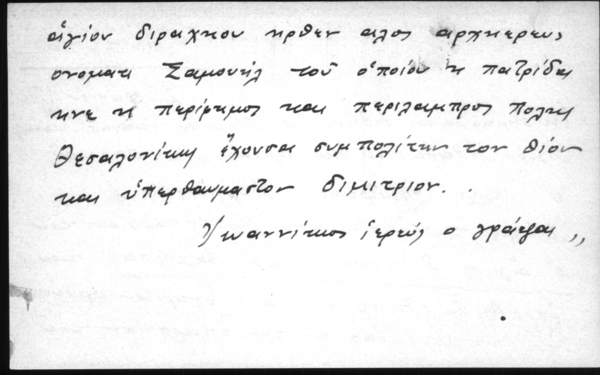 ἁγίου διραχιου ηρθεν αλος αρχηερευς
ονοματι Σαμουὴλ τοῦ ὁποίου η πατρίδα
ηνε η περίφημος και περίλαμπρος πολης
Θεσαλονίκη ἔχουσα συμπολίτην τον θίον
και ὑπερθαύμαστον διμιτριον. .
Ἰωαννίκιος ἱερεὺς ο γράψας ,,